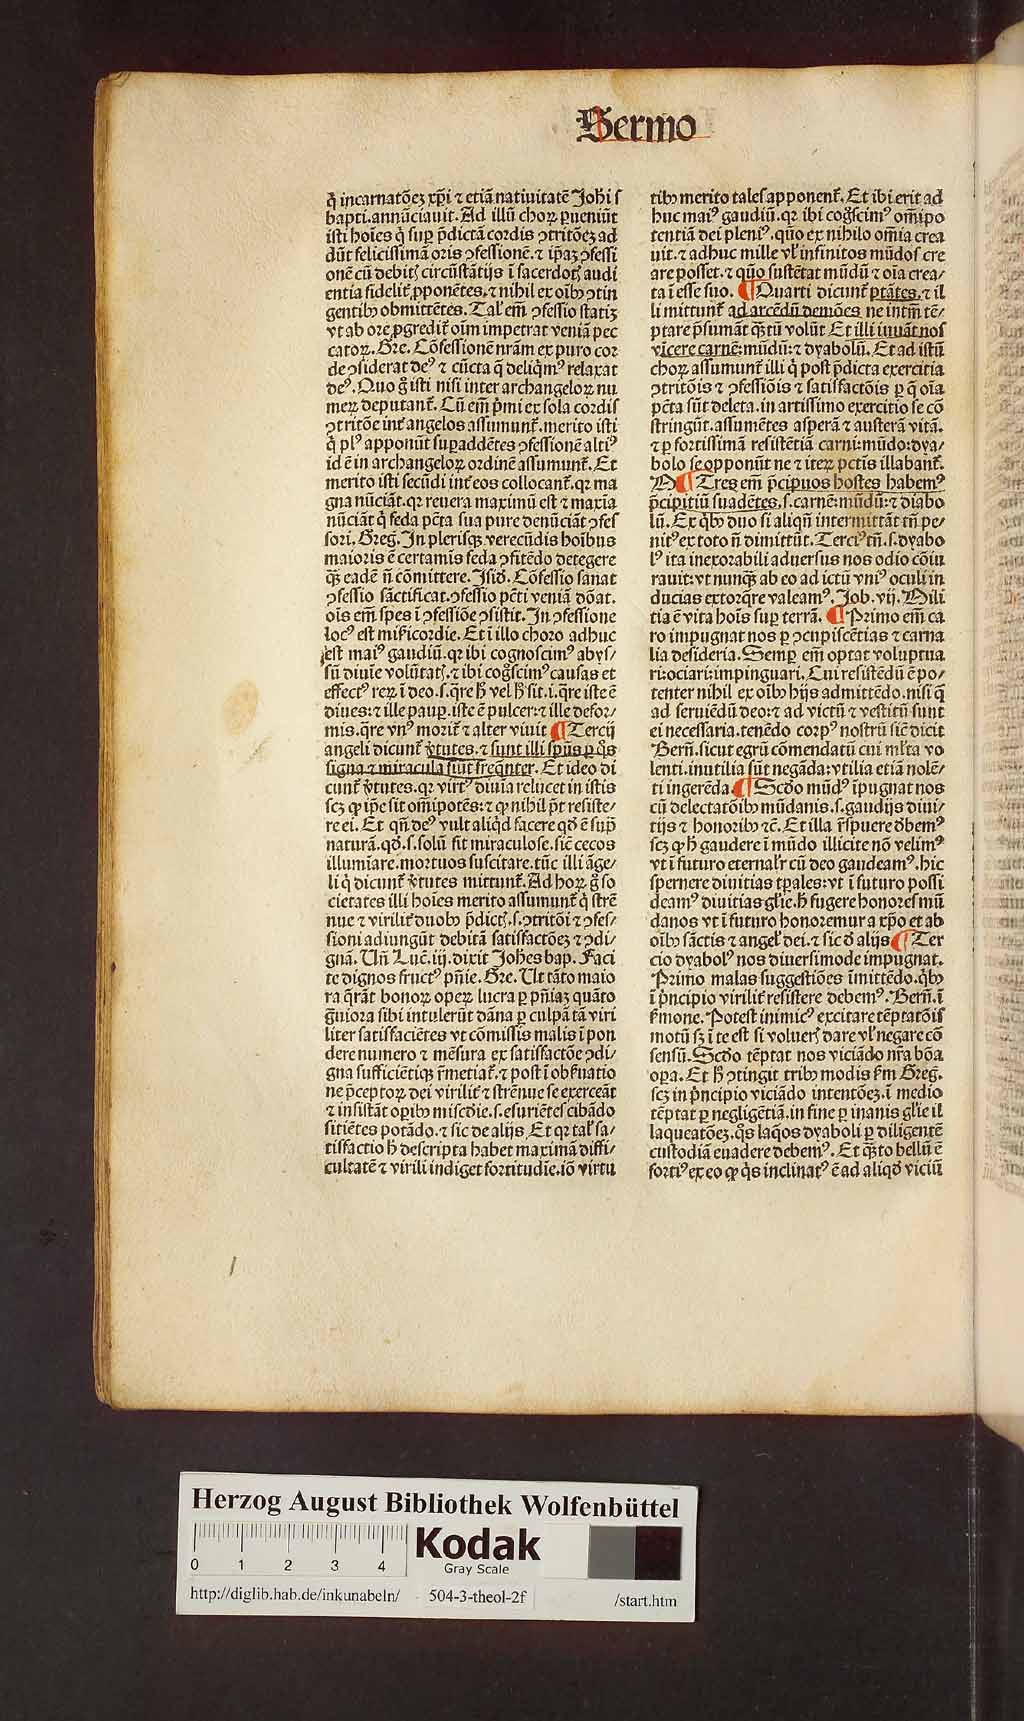 Sermo
q̇ incarnatōeꝫ xp̄i ⁊ etiā natiuitatē Joh̄i s
bapti. annūciauit. Ad illū choꝝ ꝑueniūt
isti hoīes q̇ suꝑ p̄dictā cordis ↄtritōeꝫ ad
dūt felicissimā oris ↄfessionē. ⁊ ip̄aꝫ ↄfessi
onē cū debitꝭ circūstātijs ī sacerdotꝭ audi
entia fidelit̓ ꝓponētes. ⁊ nihil ex oībꝰ ↄtin
gentibꝰ obmittētes. Tal̓ em̄ ↄfessio statiꝫ
vt ab ore ꝓgredit̓ oīm impetrat veniā pec
catoꝝ. Gre. Cōfessionē nr̄am ex puro cor
de ↄsiderat deꝰ ⁊ cūcta q̄ deliq̇mꝰ relaxat
deꝰ. Quo g̊ isti nisi inter archangeloꝝ nu
meꝝ deputant̓. Cū em̄ p̓mi ex sola cordis
ↄtritōe int̓ angelos assumunt̓. merito isti
q̇ plꝰ apponūt suꝑaddētes ↄfessionē altiꝰ
id ē in archangeloꝝ ordinē assumunt̓. Et
merito isti secūdi int̓ eos collocant̓. qꝛ ma
gna nūciāt. qꝛ reuera maximū est ⁊ maxīa
nūciāt q̇ feda pctā sua pure denūciāt ↄfes
sori. Greg. In plerisqꝫ verecūdis hoībus
maioris ē certamis feda ↄfitēdo detegere
qꝫ eadē n̄ cōmittere. Isid. Cōfessio sanat
ↄfessio sāctificat. ↄfessio pcti veniā dōat.
oīs em̄ spes ī ↄfessiōe ↄsistit. In ↄfessione
locꝰ est misericordie. Et ī illo choro adhuc
est maiꝰ gaudiū. qꝛ ibi cognoscimꝰ abys/
sū diuīe volūtatꝭ. ⁊ ibi cog̊scimꝰ causas et
effectꝰ reꝝ ī deo. s. q̄re h̄ vel h̄ sit. i. q̄re iste ē
diues: ⁊ ille pauꝑ. iste ē pulcer: ⁊ ille defor/
mis. q̄re vnꝰ morit̓ ⁊ alter viuit ¶ Tercij
angeli dicunt̓ v̓tutes. ⁊ sunt illi spūs ꝑ q̊s
signa ⁊ miracula fiūt freq̄nter. Et ideo di
cunt̓ v̓tutes. qꝛ virtꝰ diuīa relucet in istis
scꝫ ꝙ ip̄e sit om̄ipotēs: ⁊ ꝙ nihil p̄t resiste/
re ei. Et qn̄ deꝰ vult aliqd̓ facere qd̓ ē sup̄
naturā. qd̓. s. solū fit miraculose. sic̄ cecos
illumīare. mortuos suscitare. tūc illi āge/
li q̇ dicunt̓ v̓tutes mittunt̓. Ad hoꝝ g̊ so
cietates illi hoīes merito assumunt̓ q̇ strē
nue ⁊ virilit̓ duobꝰ p̄dictꝭ. s. ↄtritōi ⁊ ↄfes/
sioni adiungūt debitā satisfactōeꝫ ⁊ ↄdi/
gnā. Vn̄ Luc̄. iij. dixit Joh̄es bap. Faci
te dignos fructꝰ pn̄ie. Gre. Ut tāto maio
ra q̄rāt bonoꝝ opeꝝ lucra ꝑ pn̄iaꝫ quāto
g̊uiora sibi intulerūt dāna ꝑ culpā tā viri
liter satisfaciētes vt cōmissis malis ī pon
dere numero ⁊ mēsura ex satisfactōe ↄdi/
gna sufficiētiqꝫ r̄metiat̓. ⁊ post ī obẜuatio
ne p̄ceptoꝝ dei virilit̓ ⁊ strēnue se exerceāt
⁊ insistāt oꝑibꝰ misc̄die. s. esuriētes cibādo
sitiētes potādo. ⁊ sic de alijs. Et qꝛ tal̓ sa/
tisfactio h̄ descripta habet maximā diffi/
cultatē ⁊ virili indiget fortitudie. iō virtu
tibꝰ merito tales apponent̓. Et ibi erit ad
huc maiꝰ gaudiū. qꝛ ibi cog̊scimꝰ om̄ipo
tentiā dei pleniꝰ. quō ex nihilo om̄ia crea
uit. ⁊ adhuc mille vl̓ infinitos mūdos cre
are posset. ⁊ quō sustētat mūdū ⁊ oīa crea/
ta ī esse suo. ¶ Quarti dicunt̓ ptātes. ⁊ il
li mittunt̓ ad arcēdū demōes ne intm̄ tē/
ptare p̄sumāt qꝫtū volūt Et illi iuuāt nos
vīcere carnē: mūdū: ⁊ dyabolū. Et ad istū
choꝝ assumunt̓ illi q̇ post p̄dicta exercitia
ↄtritōis ⁊ ↄfessiōis ⁊ satisfactōis ꝑ q̄ oīa
pctā sūt deleta. in artissimo exercitio se cō
stringūt. assumētes asperā ⁊ austerā vitā.
⁊ ꝑ fortissimā resistētiā carni: mūdo: dya/
bolo se opponūt ne ⁊ iteꝝ pctīs illabant̓.
N ¶ Tres em̄ p̄cipuos hostes habemꝰ
p̄cipitiū suadētes. s. carnē: mūdū: ⁊ diabo
lū. Ex q̇bꝰ duo si aliqn̄ intermittāt tn̄ pe/
nitꝰ ex toto n̄ dimittūt. Terciꝰ tn̄. s. dyabo
lꝰ ita inexorabili aduersus nos odio cōiu
rauit: vt nunqꝫ ab eo ad ictū vniꝰ oculi in
ducias extorq̄re valeamꝰ. Job. vij. Mili
tia ē vita hoīs suꝑ terrā. ¶ Primo em̄ ca
ro impugnat nos ꝑ ↄcupiscētias ⁊ carna
lia desideria. Semꝑ em̄ optat voluptua
ri: ociari: impinguari. Cui resistēdū ē po/
tenter nihil ex oībꝰ hijs admittēdo. nisi q̄
ad seruiēdū deo: ⁊ ad victū ⁊ vestitū sunt
ei necessaria. tenēdo corpꝰ nostrū sic̄ dicit
Bern̄. sicut egrū cōmendatū cui ml̓ta vo
lenti. inutilia sūt negāda: vtilia etiā nolē/
ti ingerēda. ¶ Scd̓o mūdꝰ īpugnat nos
cū delectatōibꝰ mūdanis. s. gaudijs diui/
tijs ⁊ honoribꝰ ⁊c̄. Et illa r̄spuere d̓bemꝰ
scꝫ ꝙ h̄ gaudere ī mūdo illicite nō velimꝰ
vt ī futuro eternal̓r cū deo gaudeamꝰ. hic
spernere diuitias tꝑales: vt ī futuro possi
deamꝰ diuitias gl̓ie. h̄ fugere honores mū
danos vt ī futuro honoremur a xp̄o et ab
oībꝰ sāctis ⁊ angel̓ dei. ⁊ sic d̓ alijs ¶ Ter
cio dyabolꝰ nos diuersimode impugnat.
Primo malas suggestiōes īmittēdo. q̇bꝰ
ī p̄ncipio virilit̓ resistere debemꝰ. Bern̄. ī
ẜmone. Potest inimicꝰ excitare tēptatōis
motū sꝫ ī te est si voluerꝭ dare vl̓ negare cō
sensū. Scd̓o tēptat nos viciādo nr̄a bōa
oꝑa. Et h̄ ↄtingit tribꝰ modis ẜm Greḡ.
scꝫ in p̄ncipio viciādo intentōeꝫ. ī medio
tēptat ꝑ negligētiā. in fine ꝑ inanis gl̓ie il
laqueatōeꝫ. q̊s laq̄os dyaboli ꝑ diligentē
custodiā euadere debemꝰ. Et qꝫto bellū ē
fortiꝰ ex eo ꝙ q̇s inclinatꝰ ē ad aliqd̓ viciū
Herzog August Bibliothek Wolfenbüttel
0 1 2 3 4
Kodak
Gray Scale
http://diglib.hab.de/inkunabeln/ 504-3-theol-2f /start.htm